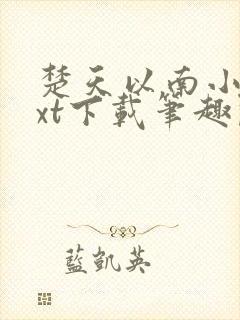 楚天以南小
xt下載筆趣
藍凱英